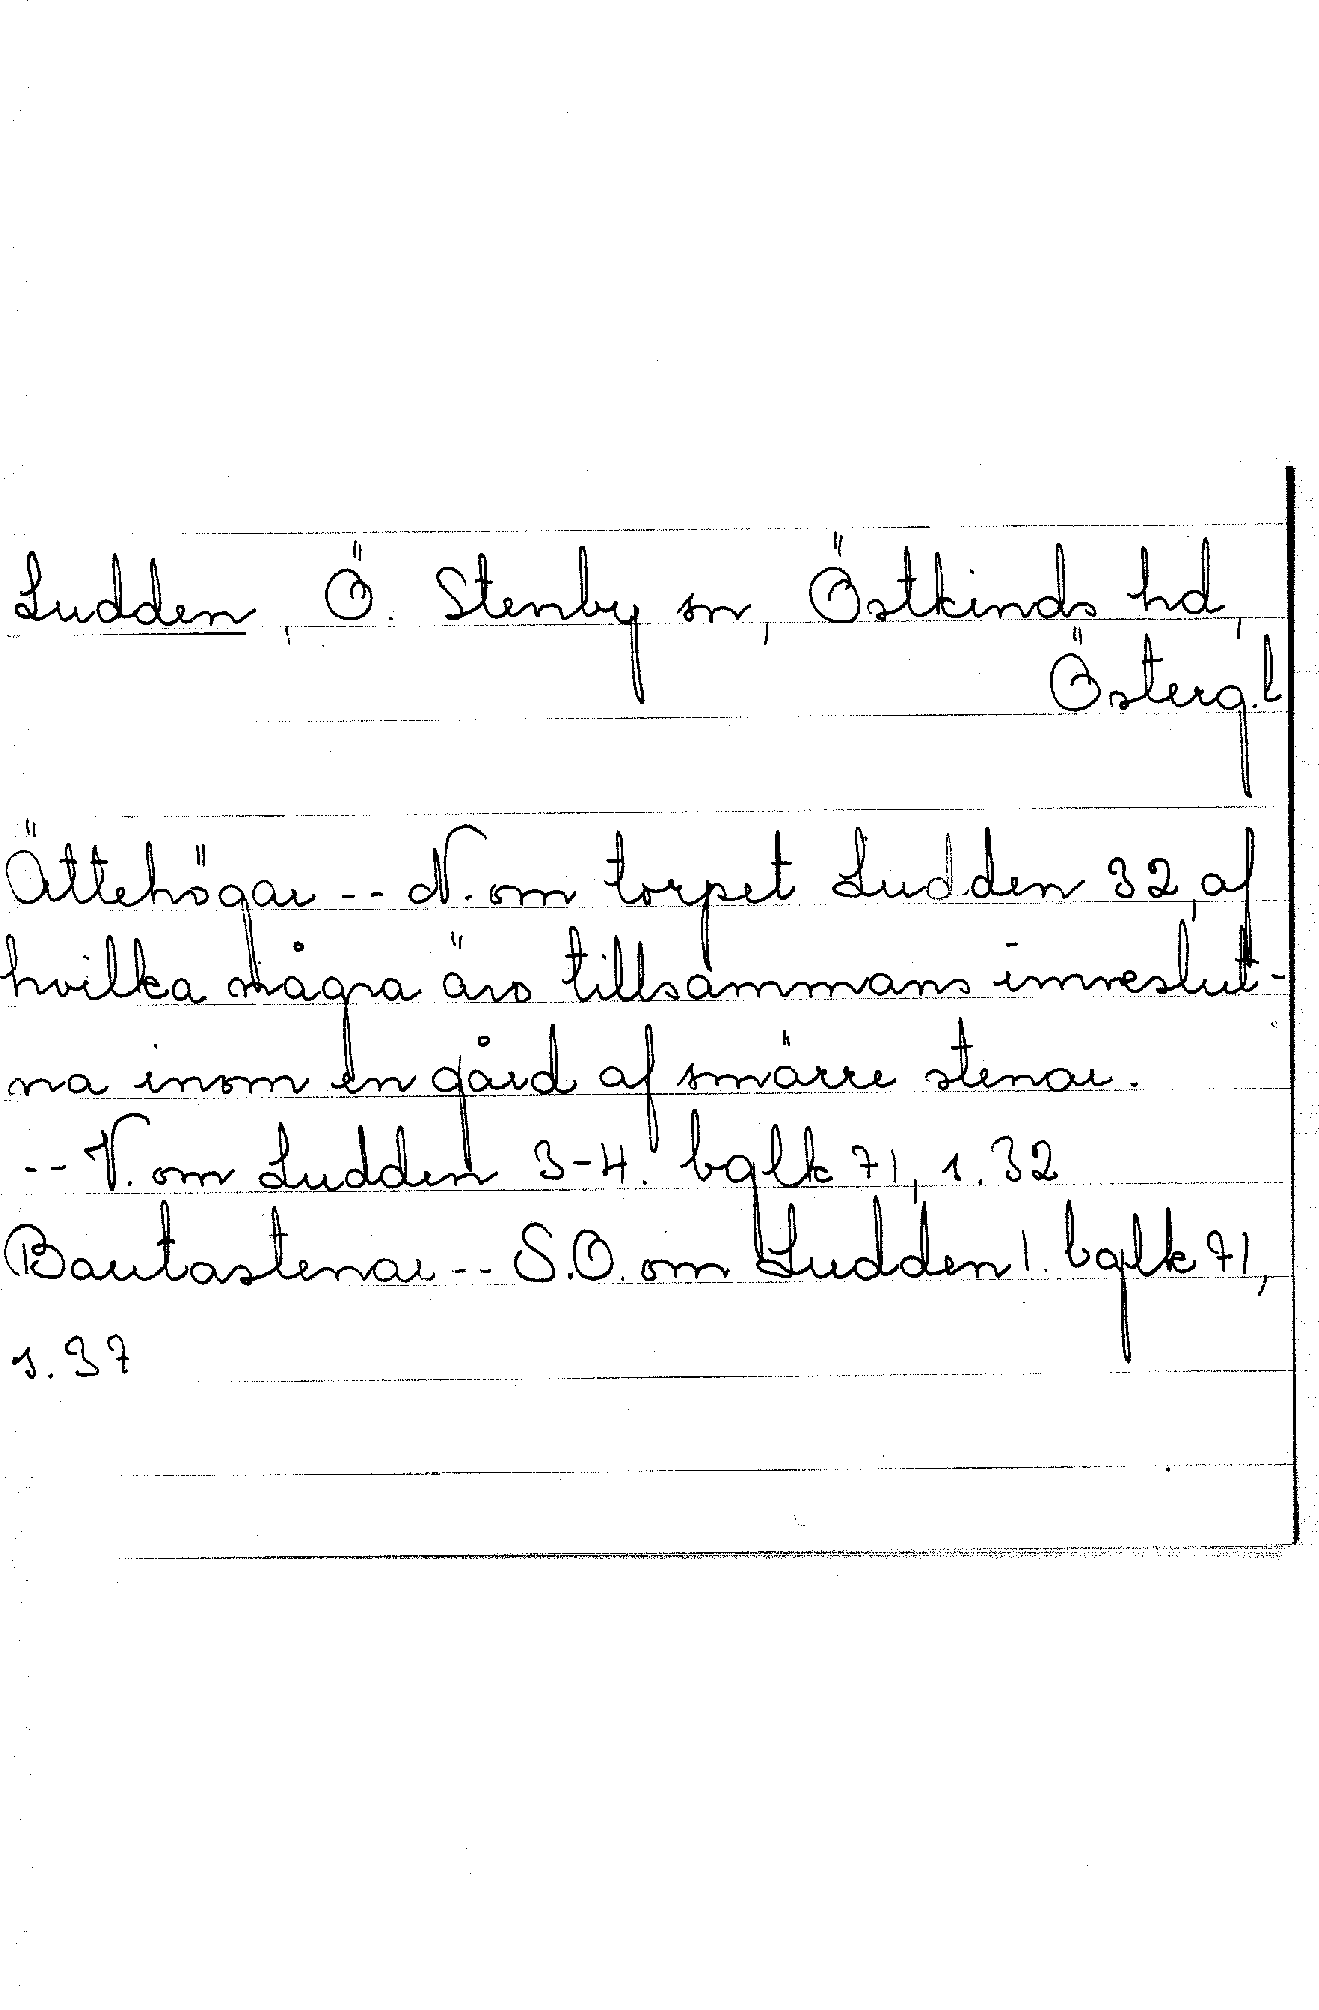 Ludden, Ö. Stenby sn, Östkinds hd,
Österg.l
Ättehögar -- N. om torpet Ludden 32, af
hvilka några äro tillsammans inneslut-
na inom en gård af smärre stenar.
-- V. om Ludden 3-4. bglk 71, s. 32
Bautastenar -- S.O. om Ludden 1. bglk 71,
s. 37